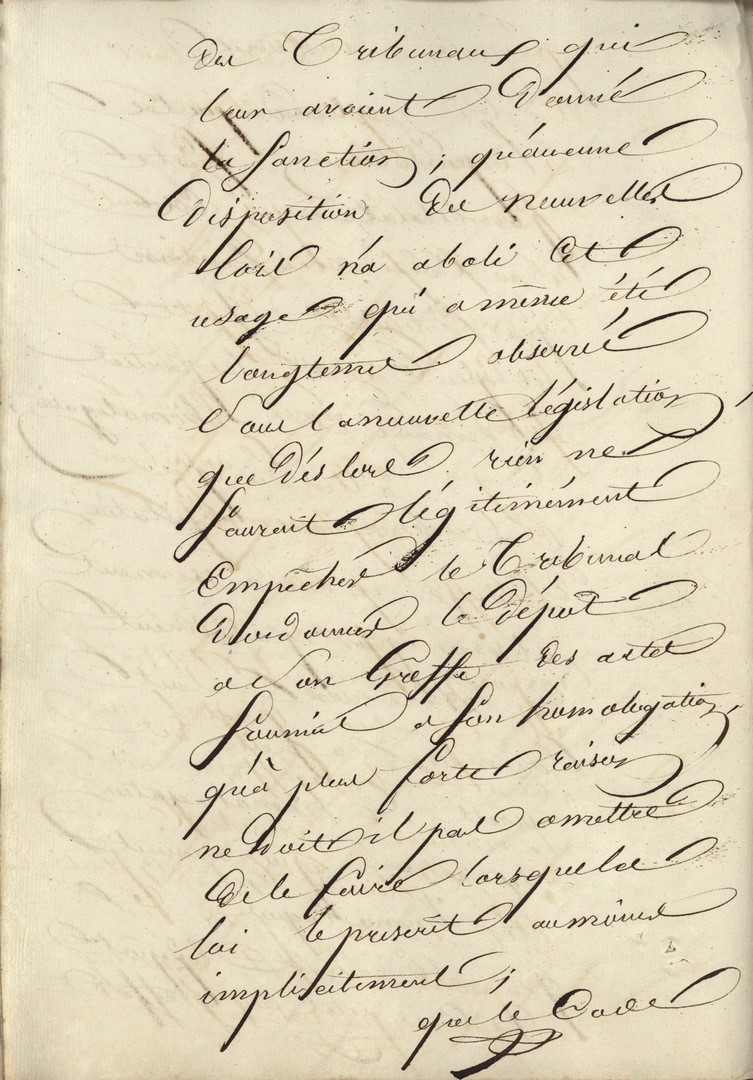 des Tribunaux qui
leur avoient Donné
la Sanction ; qu'aucune
Disposition des nouvelles
loix n'a aboli cet
usage qui a même été
longtems observé
sous la nouvelle législation,
que Dés lors rien ne
Sauroit légitimément
Empêcher le Tribunal
D'ordonner le Dépôt
a son Greffe des actes
Soumis a son homologation,
qu'à plus forte raison
ne Doit il pas omettre
De le faire lorsque la
loi le prescrit au moins
implicitement ;
que le Code